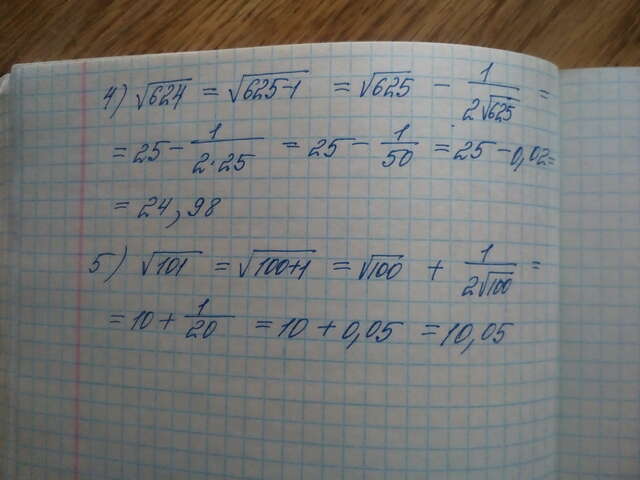 4) √624 = √625-1 = √625 - 1/2√625 =
= 25 - 1/2·25 = 25 - 1/50 = 25 - 0,02 =
= 24,98
5) √101 = √100+1 = √100 + 1/2√100 =
= 10 + 1/20 = 10 + 0,05 = 10,05